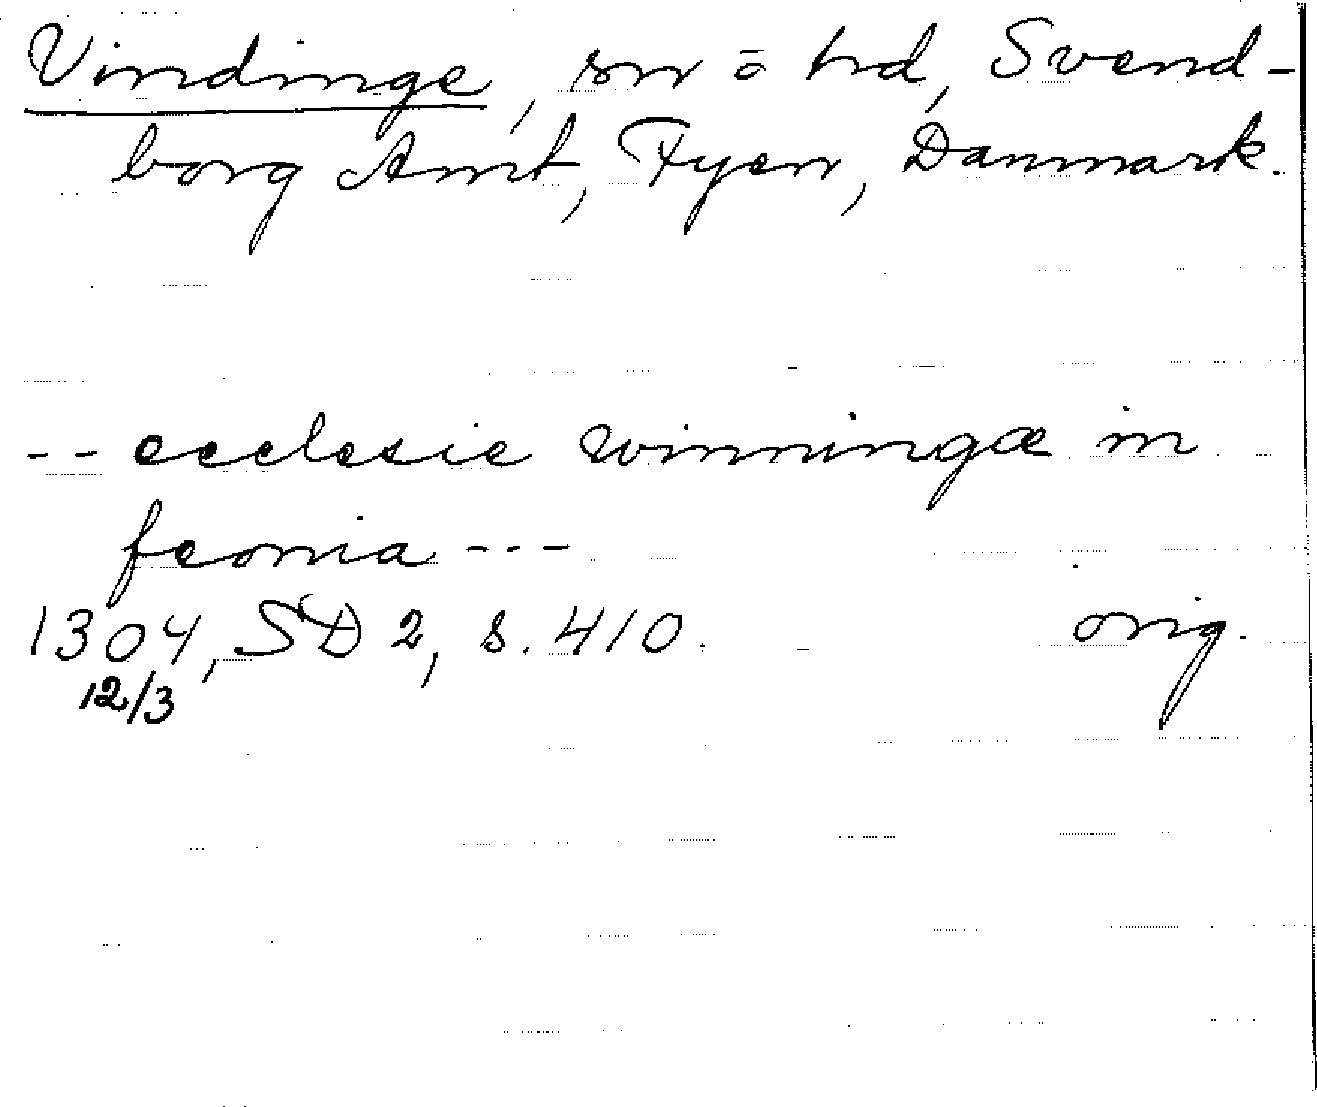 Vindinge, sn ō hd, Svend-
borg Amt, Fyen, Danmark.
-- ecclesie winningæ in
feonia ---
1304, SD 2, s. 410. orig.
12/3